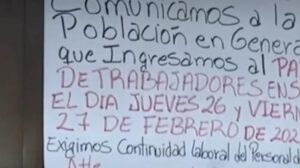 Comunicamos a la
Población en Genera
que Ingresamos al PA
DE TRABAJADORES EN S
EL DIA JUEVES 26 y VIER
27 DE FEBRERO DE 202
Exigimos Continuidad Laboral del Personal d
Atte